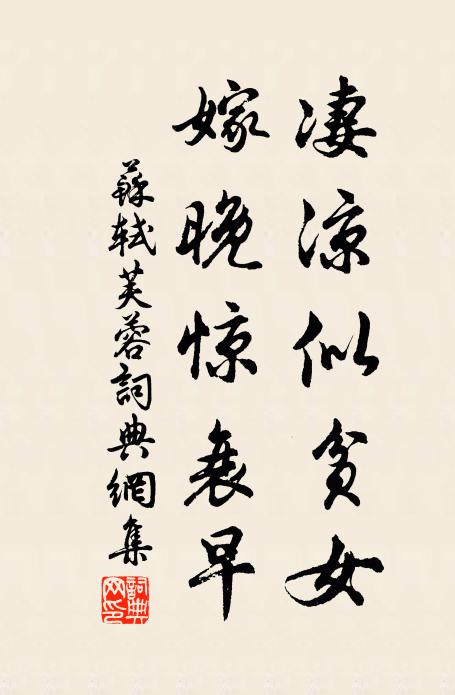 凄凉似贫女
嫁晚惊衰早
蘇軾芙蓉詞典網集
詞典网印